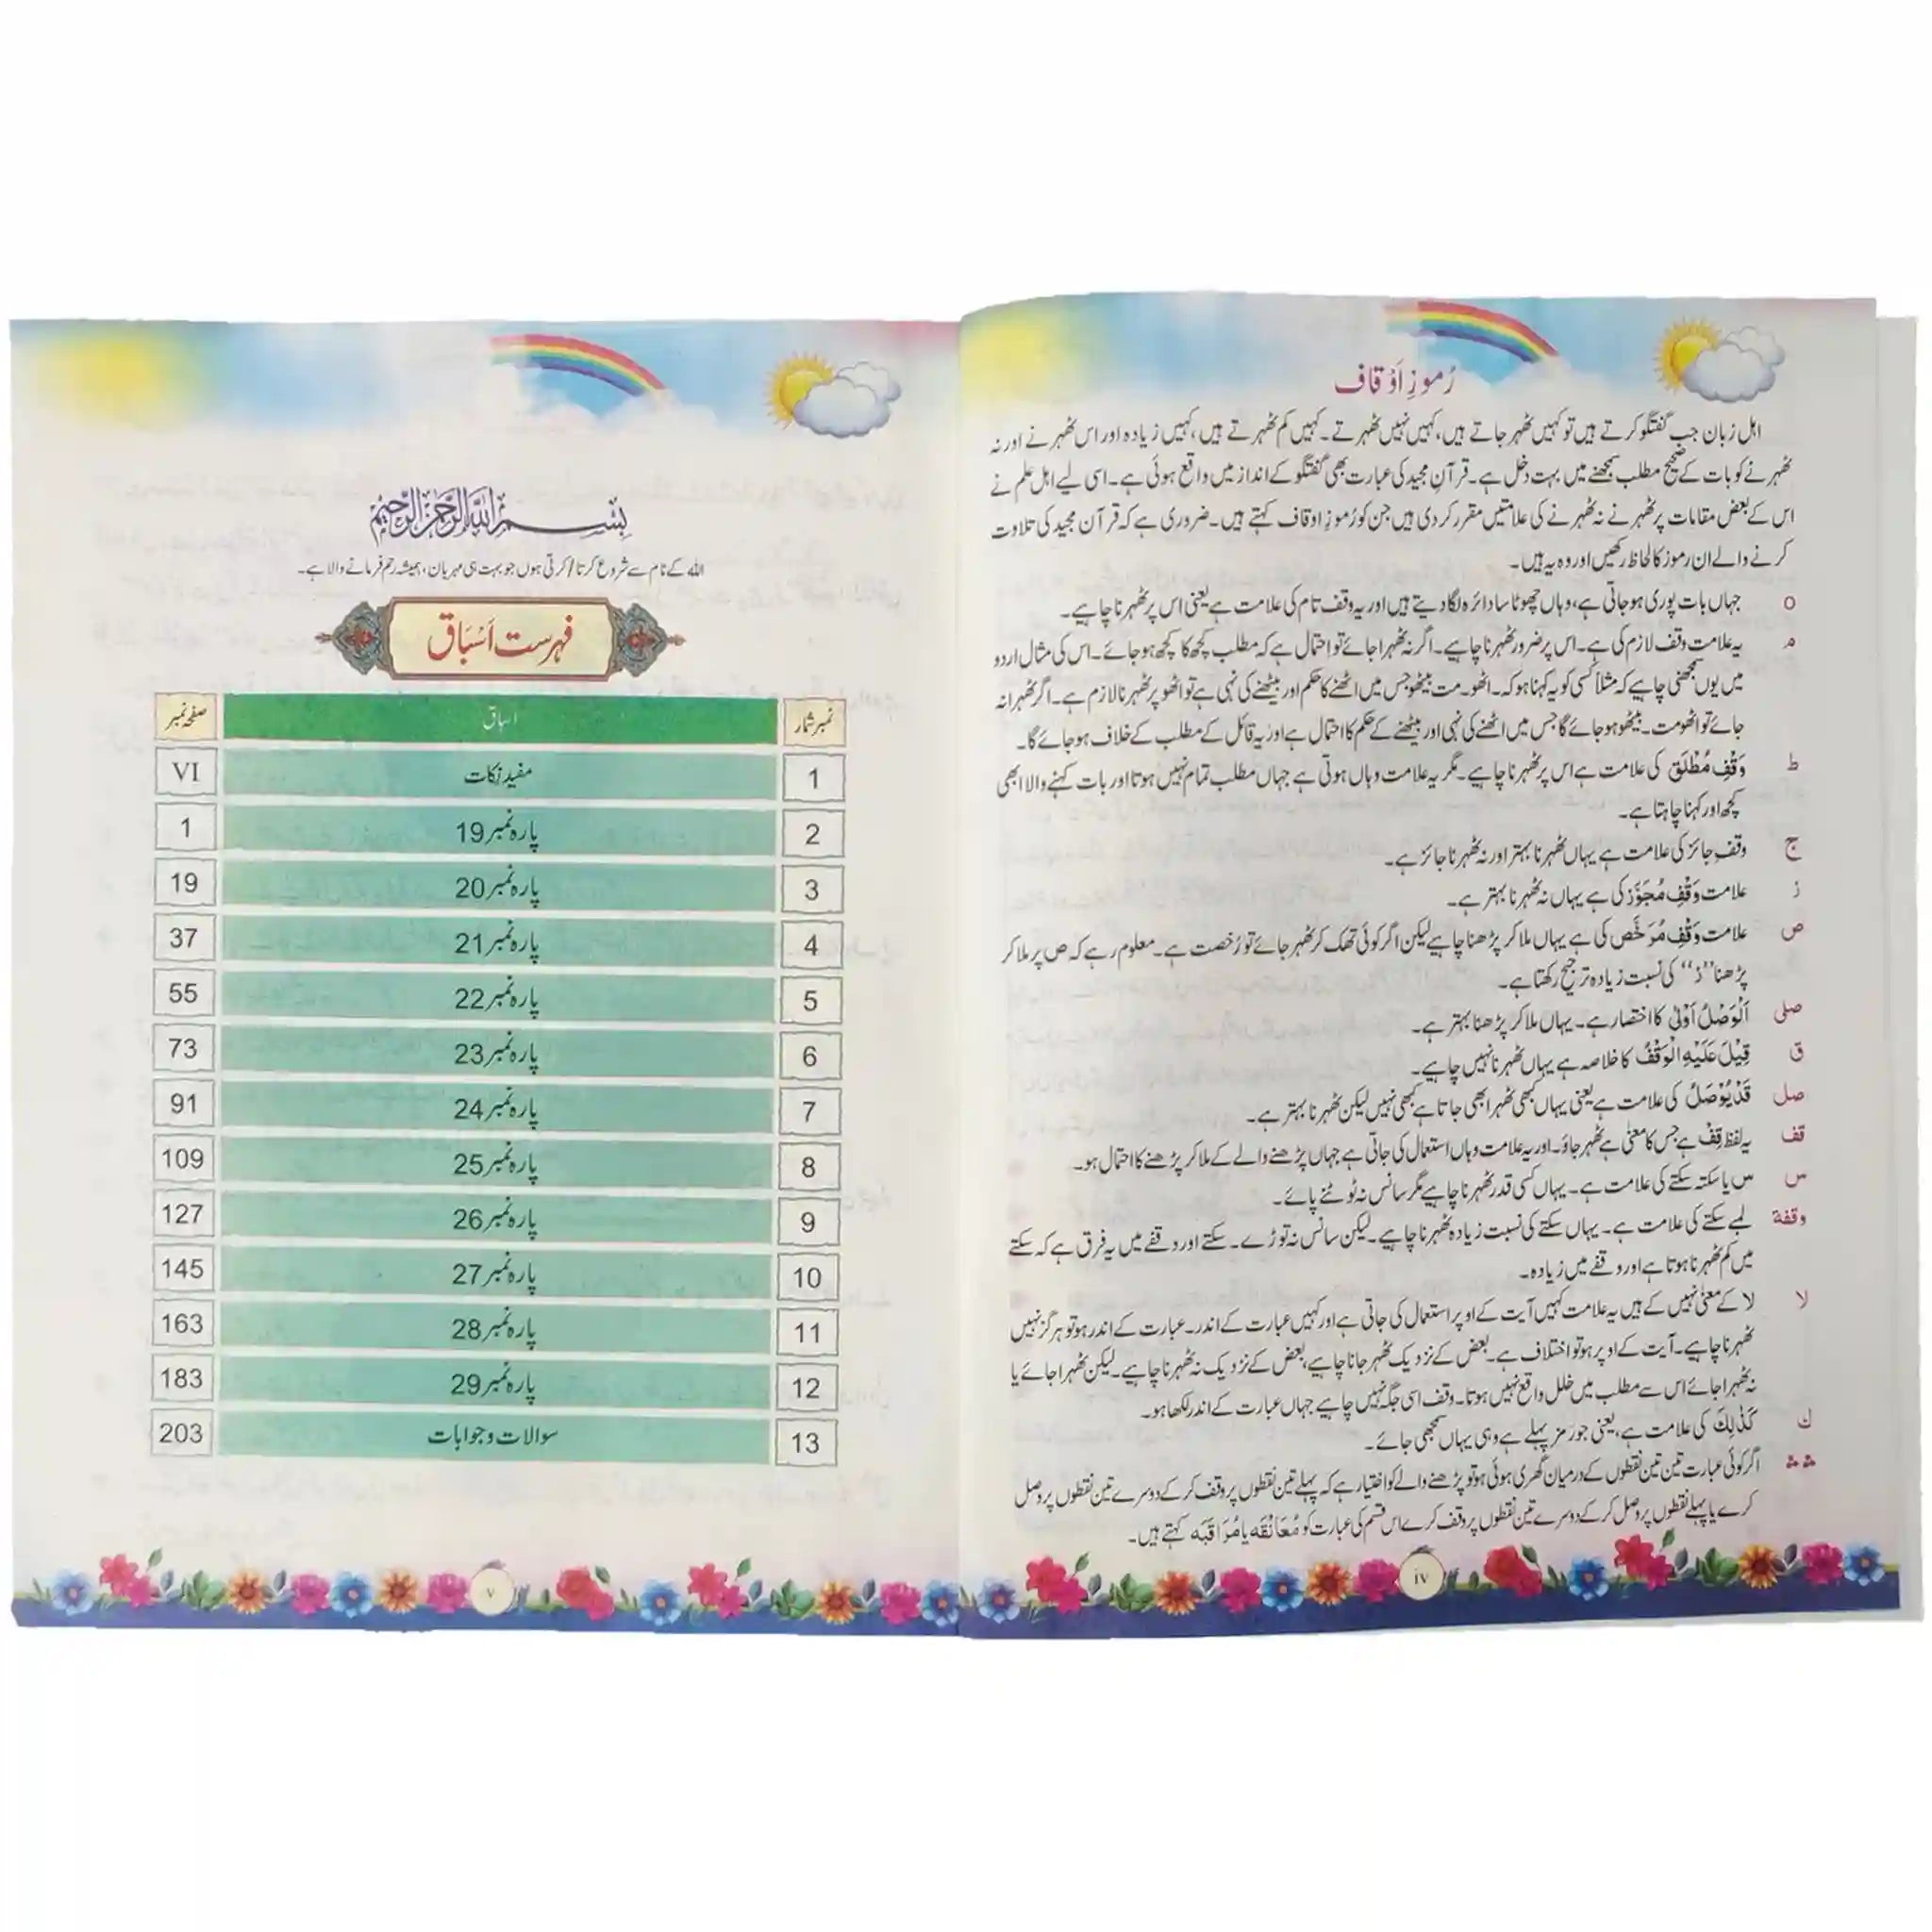 رُموزِ اَوْقاف
اہل زبان جب گفتگو کرتے ہیں تو کہیں ٹھہر جاتے ہیں، کہیں نہیں ٹھہرتے۔ کہیں کم ٹھہرتے ہیں، کہیں زیادہ اور اس ٹھہرنے اور نہ
ٹھہرنے کو بات کے صحیح مطلب سمجھنے میں بہت دخل ہے۔ قرآنِ مجید کی عبارت بھی گفتگو کے انداز میں واقع ہوئی ہے۔ اسی لیے اہل علم نے
اس کے بعض مقامات پر ٹھہرنے نہ ٹھہرنے کی علامتیں مقرر کر دی ہیں جن کو رُموزِ اوقاف کہتے ہیں۔ ضروری ہے کہ قرآن مجید کی تلاوت
کرنے والے ان رموز کا لحاظ رکھیں اور وہ یہ ہیں۔
ہ جہاں بات پوری ہو جاتی ہے، وہاں چھوٹا سا دائرہ لگا دیتے ہیں اور یہ وقف تام کی علامت ہے یعنی اس پر ٹھہرنا چاہیے۔
مـ یہ علامت وقف لازم کی ہے۔ اس پر ضرور ٹھہرنا چاہیے۔ اگر نہ ٹھہرا جائے تو احتمال ہے کہ مطلب کچھ کا کچھ ہو جائے۔ اس کی مثال اردو
میں یوں سمجھنی چاہیے کہ مثلاً کسی کو یہ کہنا ہو کہ۔ اٹھو۔ مت بیٹھو جس میں اٹھنے کا حکم اور بیٹھنے کی نہی ہے تو اٹھو پر ٹھہرنا لازم ہے۔ اگر ٹھہرا نہ
جائے تو اٹھومت۔ بیٹھو ہو جائے گا جس میں اٹھنے کی نہی اور بیٹھنے کے حکم کا احتمال ہے اور یہ قائل کے مطلب کے خلاف ہو جائے گا۔
ط وَقْفِ مُطْلَق کی علامت ہے اس پر ٹھہرنا چاہیے۔ مگر یہ علامت وہاں ہوتی ہے جہاں مطلب تمام نہیں ہوتا اور بات کہنے والا ابھی
کچھ اور کہنا چاہتا ہے۔
ج وقفِ جائز کی علامت ہے یہاں ٹھہرنا بہتر اور نہ ٹھہرنا جائز ہے۔
ز علامت وَقْفِ مُجَوَّز کی ہے یہاں نہ ٹھہرنا بہتر ہے۔
ص علامت وَقْفِ مُرَخَّص کی ہے یہاں ملا کر پڑھنا چاہیے لیکن اگر کوئی تھک کر ٹھہر جائے تو رُخصت ہے۔ معلوم رہے کہ ص پر ملا کر
پڑھنا ”ز“ کی نسبت زیادہ ترجیح رکھتا ہے۔
صلی اَلْوَصْلُ اَوْلٰی کا اختصار ہے۔ یہاں ملا کر پڑھنا بہتر ہے۔
ق قِیْلَ عَلَیْهِ الْوَقْفُ کا خلاصہ ہے یہاں ٹھہرنا نہیں چاہیے۔
صل قَدْ یُوْصَلُ کی علامت ہے یعنی یہاں کبھی ٹھہرا بھی جاتا ہے کبھی نہیں لیکن ٹھہرنا بہتر ہے۔
قف یہ لفظ قِفْ ہے جس کا معنیٰ ہے ٹھہر جاؤ۔ اور یہ علامت وہاں استعمال کی جاتی ہے جہاں پڑھنے والے کے ملا کر پڑھنے کا احتمال ہو۔
س س یا سکتہ سکتے کی علامت ہے۔ یہاں کسی قدر ٹھہرنا چاہیے مگر سانس نہ ٹوٹنے پائے۔
وقفة لمبے سکتے کی علامت ہے۔ یہاں سکتے کی نسبت زیادہ ٹھہرنا چاہیے۔ لیکن سانس نہ توڑے۔ سکتے اور وقفے میں یہ فرق ہے کہ سکتے
میں کم ٹھہرنا ہوتا ہے اور وقفے میں زیادہ۔
لا لا کے معنیٰ نہیں کے ہیں یہ علامت کہیں آیت کے اوپر استعمال کی جاتی ہے اور کہیں عبارت کے اندر۔ عبارت کے اندر ہو تو ہرگز نہیں
ٹھہرنا چاہیے۔ آیت کے اوپر ہو تو اختلاف ہے۔ بعض کے نزدیک ٹھہر جانا چاہیے، بعض کے نزدیک نہ ٹھہرنا چاہیے۔ لیکن ٹھہرا جائے یا
نہ ٹھہرا جائے اس سے مطلب میں خلل واقع نہیں ہوتا۔ وقف اسی جگہ نہیں چاہیے جہاں عبارت کے اندر لکھا ہو۔
ك کَذٰلِكَ کی علامت ہے، یعنی جو رمز پہلے ہے وہی یہاں سمجھی جائے۔
∴ ∴ اگر کوئی عبارت تین تین نقطوں کے درمیان گھری ہوئی ہو تو پڑھنے والے کو اختیار ہے کہ پہلے تین نقطوں پر وقف کر کے دوسرے تین نقطوں پر وصل
کرے یا پہلے نقطوں پر وصل کر کے دوسرے تین نقطوں پر وقف کرے اس قسم کی عبارت کو مُعَانَقَه یا مُرَاقَبَه کہتے ہیں۔
iv
بِسْمِ اللّٰهِ الرَّحْمٰنِ الرَّحِیْمِ
اللہ کے نام سے شروع کرتا/کرتی ہوں جو بہت ہی مہربان، ہمیشہ رحم فرمانے والا ہے۔
فہرست اَسْبَاق
نمبر شمار اسباق صفحہ نمبر
1 مفید نکات VI
2 پارہ نمبر 19 1
3 پارہ نمبر 20 19
4 پارہ نمبر 21 37
5 پارہ نمبر 22 55
6 پارہ نمبر 23 73
7 پارہ نمبر 24 91
8 پارہ نمبر 25 109
9 پارہ نمبر 26 127
10 پارہ نمبر 27 145
11 پارہ نمبر 28 163
12 پارہ نمبر 29 183
13 سوالات و جوابات 203
v